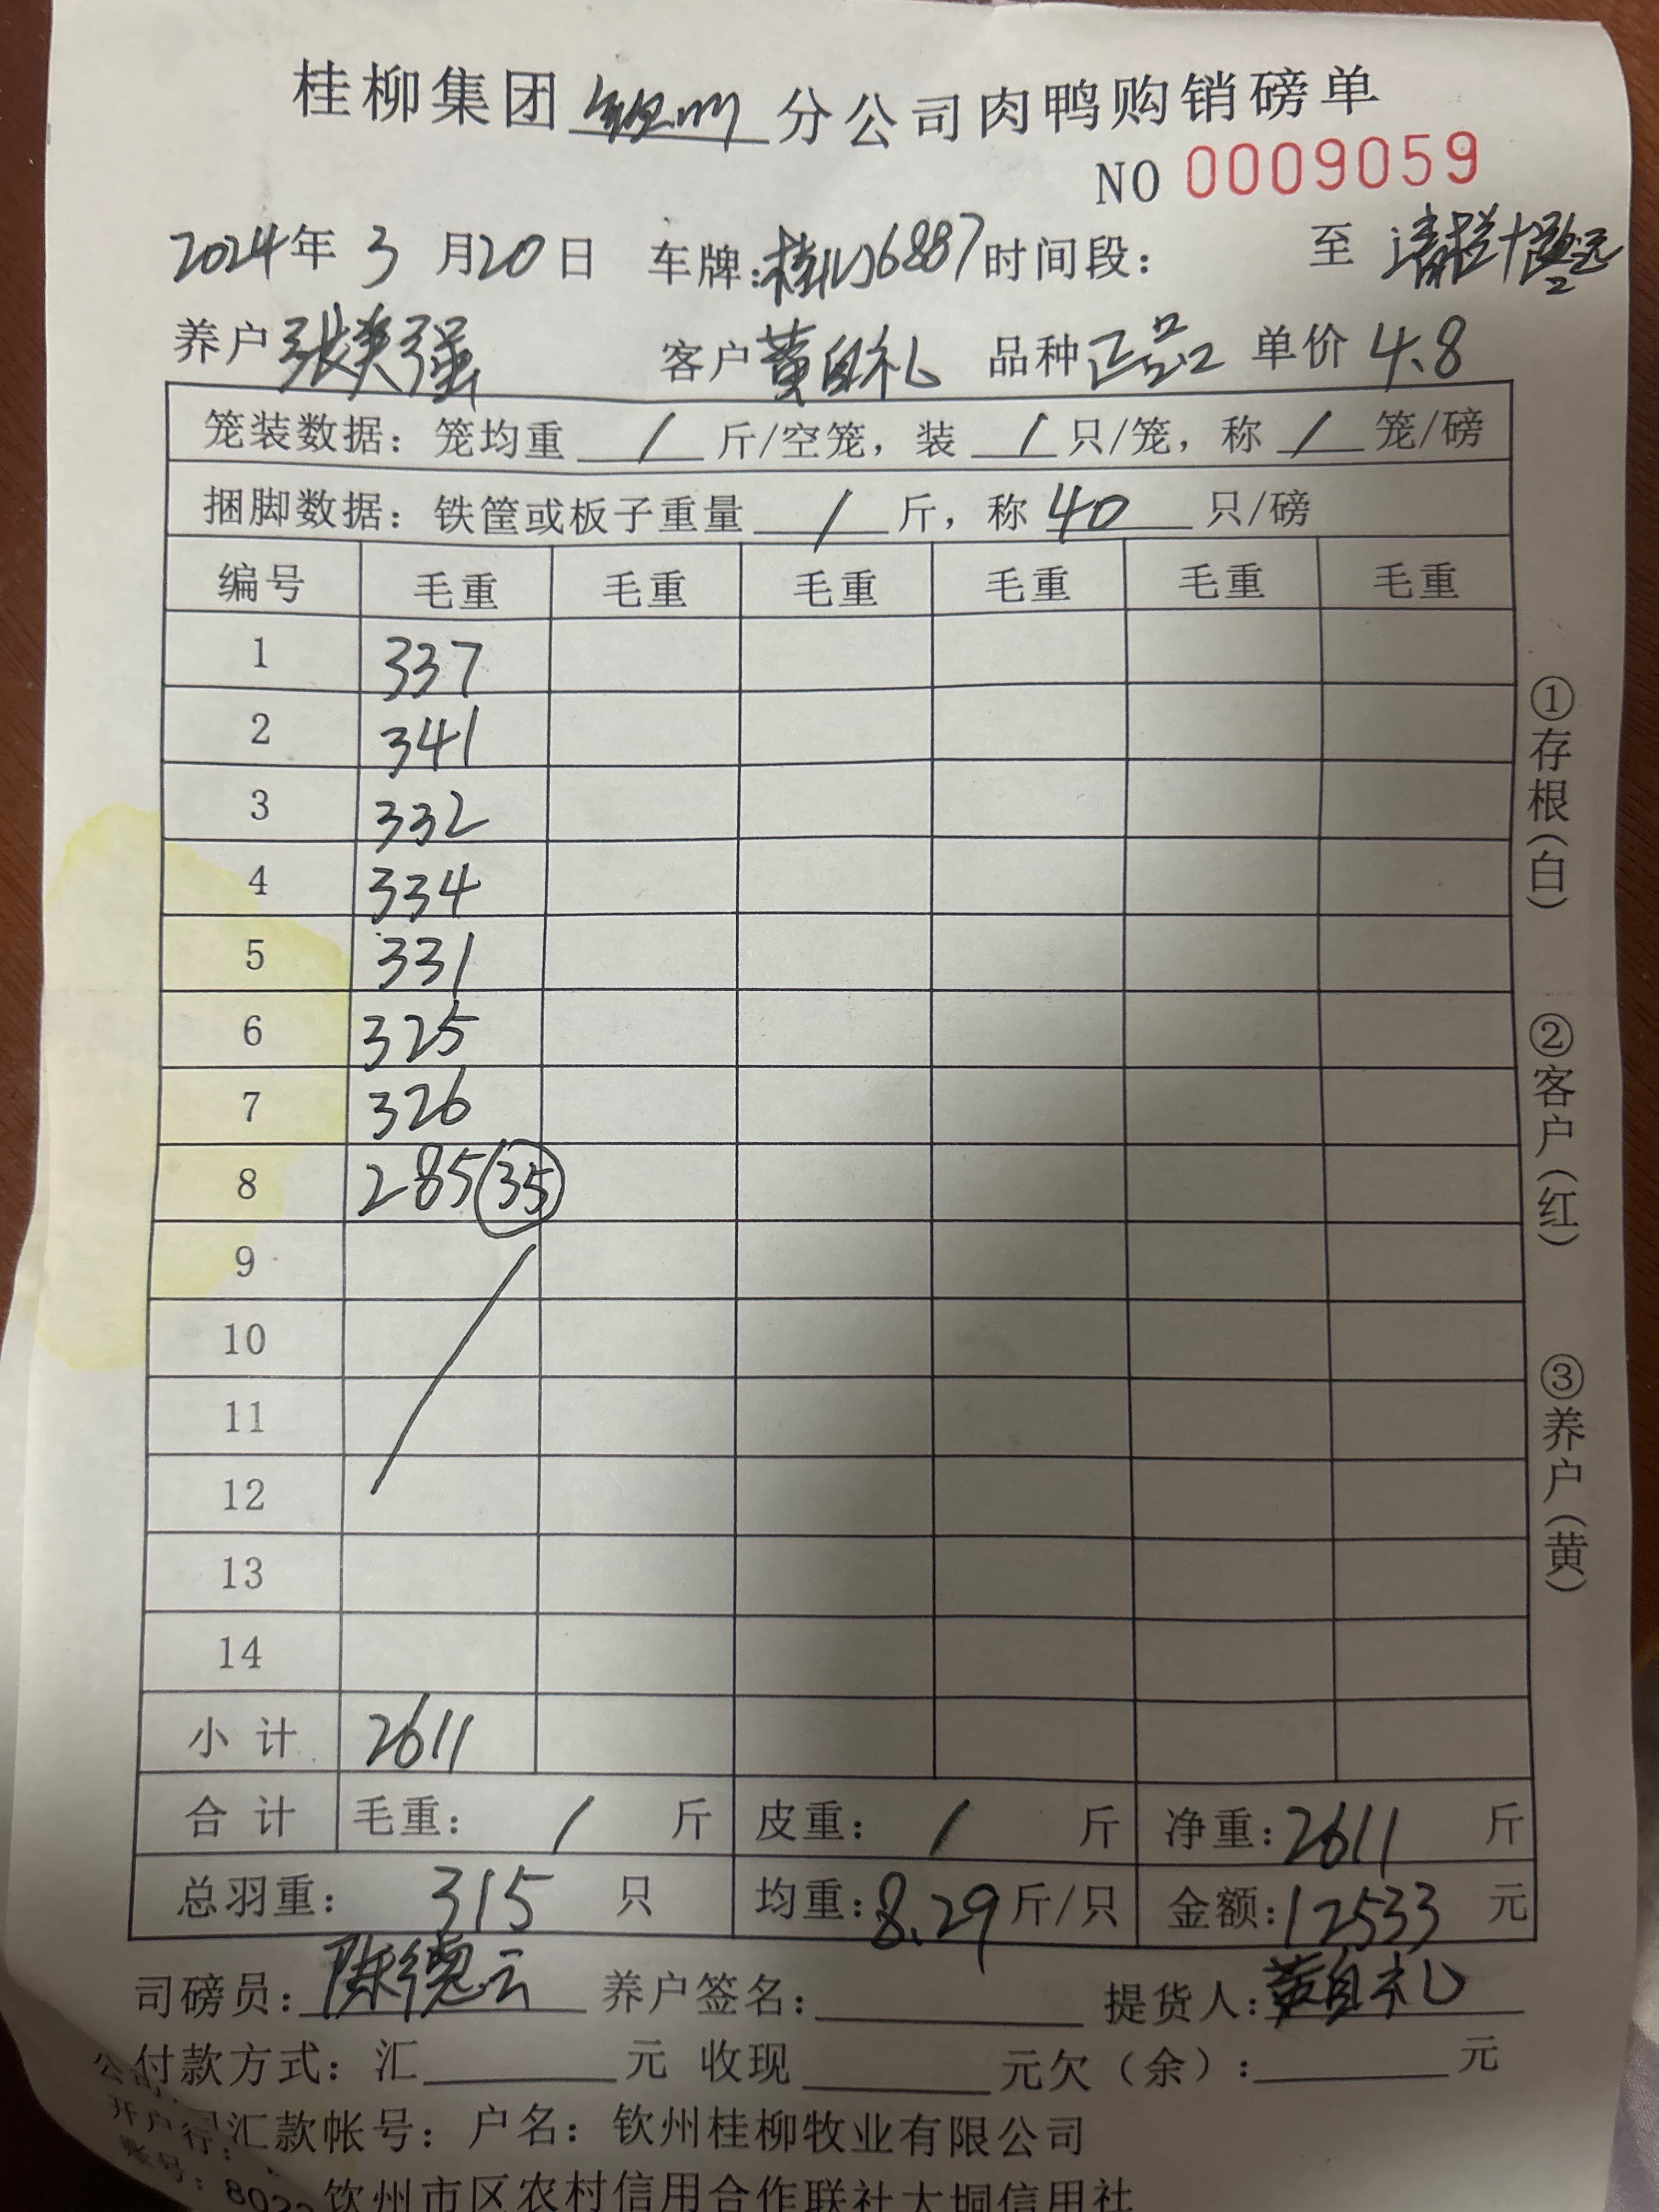 桂柳集团钦州分公司肉鸭购销磅单
NO 0009059
2024年3月20日 车牌：6887 时间段： 至
养户张英强 客户黄自礼 品种正品 单价4.8
笼装数据：笼均重 / 斤/空笼，装 / 只/笼，称 / 笼/磅
捆脚数据：铁筐或板子重量 / 斤，称 40 只/磅
编号 毛重 毛重 毛重 毛重 毛重 毛重
1 337
2 341
3 332
4 334
5 331
6 325
7 326
8 285 35
9
10
11
12
13
14
小计 2611
合计 毛重： / 斤 皮重： / 斤 净重：2611 斤
总羽重： 315 只 均重：8.29斤/只 金额：12533 元
司磅员：陈德云 养户签名： 提货人：黄自礼
付款方式：汇 元 收现 元欠（余）： 元
汇款帐号：户名：钦州桂柳牧业有限公司
钦州市区农村信用合作联社大垌信用社
①存根（白） ②客户（红） ③养户（黄）
开户行：
账号：802